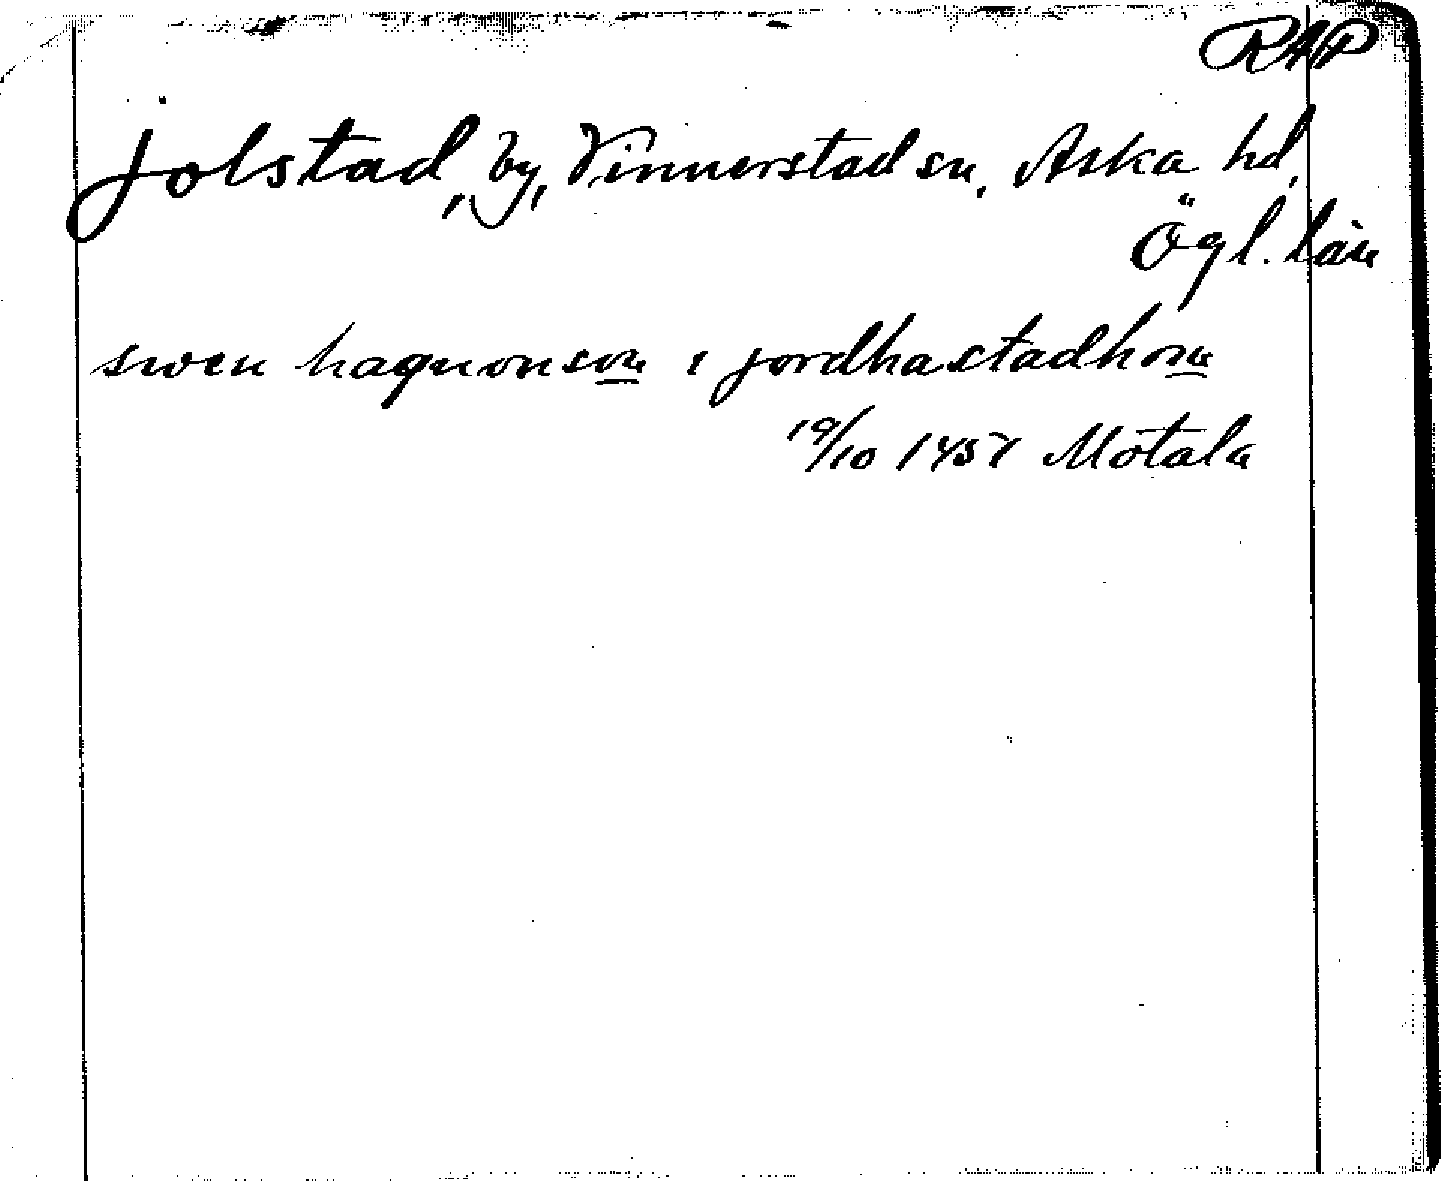 RAP
Jolstad, by, Vinnerstad sn, Aska hd,
Ögl. län
swen haquonson i jordhastadhom
19/10 1457 Motala